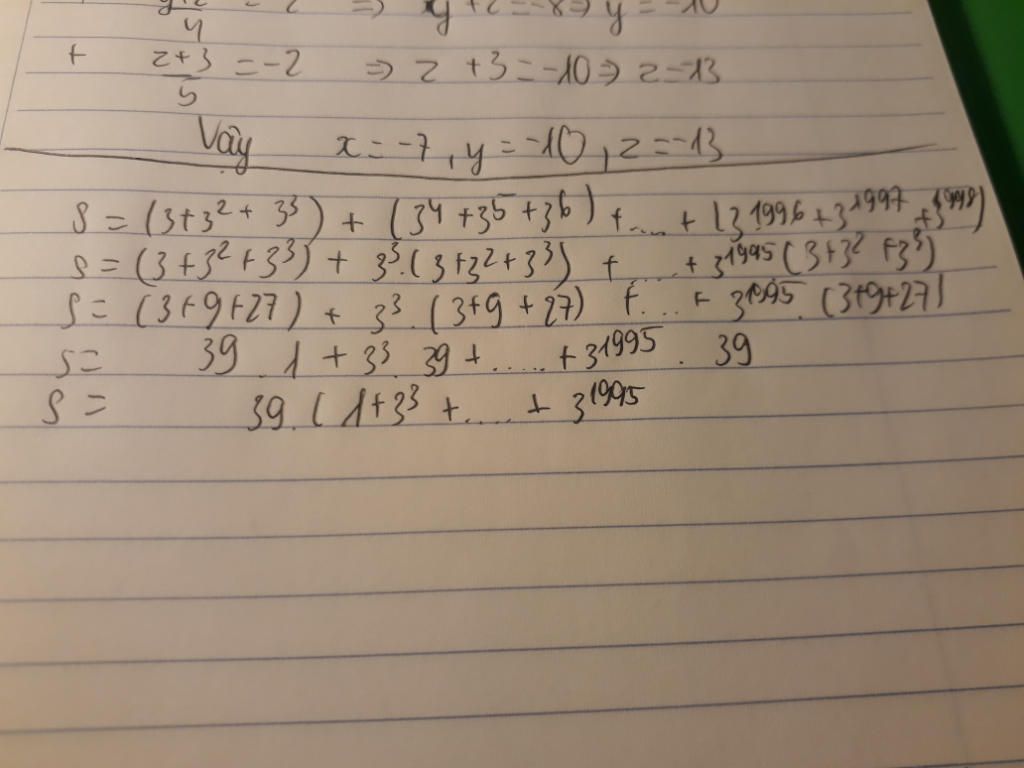 y+2/4 = -2 ⇒ y + 2 = -8 ⇒ y = -10
+ z+3/5 = -2 ⇒ z + 3 = -10 ⇒ z = -13
Vậy x = -7, y = -10, z = -13
S = (3+3² + 3³) + (3⁴ +3⁵ +3⁶) + .... + (3¹⁹⁹⁶ +3¹⁹⁹⁷ +3¹⁹⁹⁸)
S = (3 +3² +3³) + 3³.(3 +3² +3³) + .... + 3¹⁹⁹⁵ (3+3² +3³)
S = (3+9+27) + 3³. (3+9 +27) + .... + 3¹⁹⁹⁵. (3+9+27)
S = 39 . 1 + 3³. 39 + ..... + 3¹⁹⁹⁵ . 39
S = 39. ( 1+3³ + .... + 3¹⁹⁹⁵